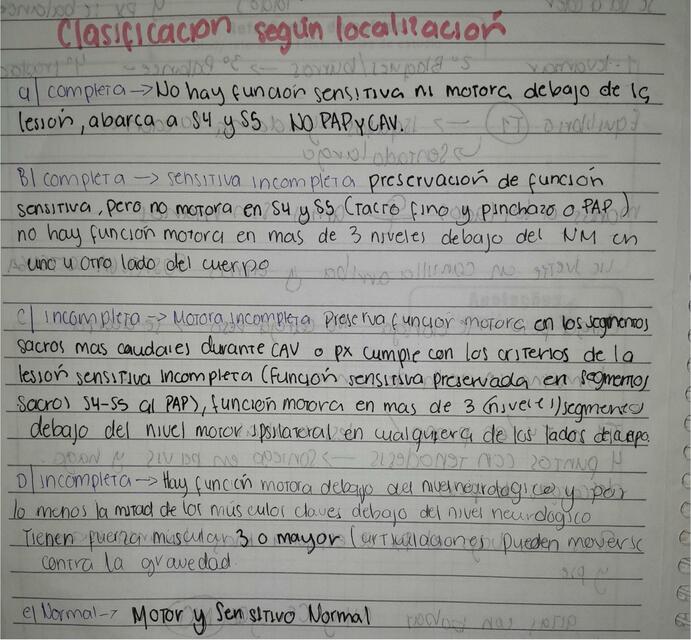 Clasificacion según localización
a) completa → No hay función sensitiva ni motora debajo de la
lesión, abarca a S4 y S5 NO PAP y CAV.
B) completa → sensitiva incompleta preservación de función
sensitiva, pero no motora en S4 y S5 (Tacto fino y pinchazo o PAP)
no hay función motora en mas de 3 niveles debajo del NM en
uno u otro lado del cuerpo
c) incompleta → Motora incompleta Preserva función motora en los segmentos
sacros mas caudales durante CAV o px cumple con los criterios de la
lesión sensitiva incompleta (Función sensitiva preservada en segmentos
sacros S4-S5 al PAP), función motora en mas de 3 (niveles) segmentos
debajo del nivel motor ipsilateral en cualquiera de los lados del cuerpo.
D) incompleta → Hay función motora debajo del nivel neurologico y por
lo menos la mitad de los músculos claves debajo del nivel neurológico
Tienen fuerza muscular 3 o mayor (articulaciones pueden moverse
contra la gravedad.
e) Normal → Motor y Sensitivo Normal